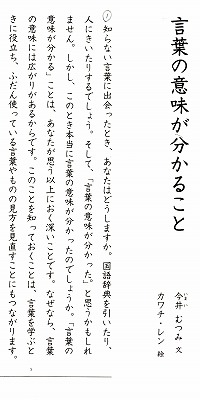 言葉の意味が分かること
今井 むつみ 文
いまい
カワチ・レン 絵
① 知らない言葉に出会ったとき、あなたはどうしますか。国語辞典を引いたり、
人にきいたりするでしょう。そして、「言葉の意味が分かった。」と思うかもしれ
ません。しかし、このとき本当に言葉の意味が分かったのでしょうか。「言葉の
意味が分かる」ことは、あなたが思う以上におく深いことです。なぜなら、言葉
の意味には広がりがあるからです。このことを知っておくことは、言葉を学ぶと
きに役立ち、ふだん使っている言葉やものの見方を見直すことにもつながります。